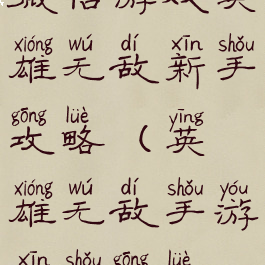 微信游戏英
xióng wú dí xīn shǒu
雄无敌新手
gōng lüè yīng
攻略(英
xióng wú dí shǒu yóu
雄无敌手游
xīn shǒu gōng lüè